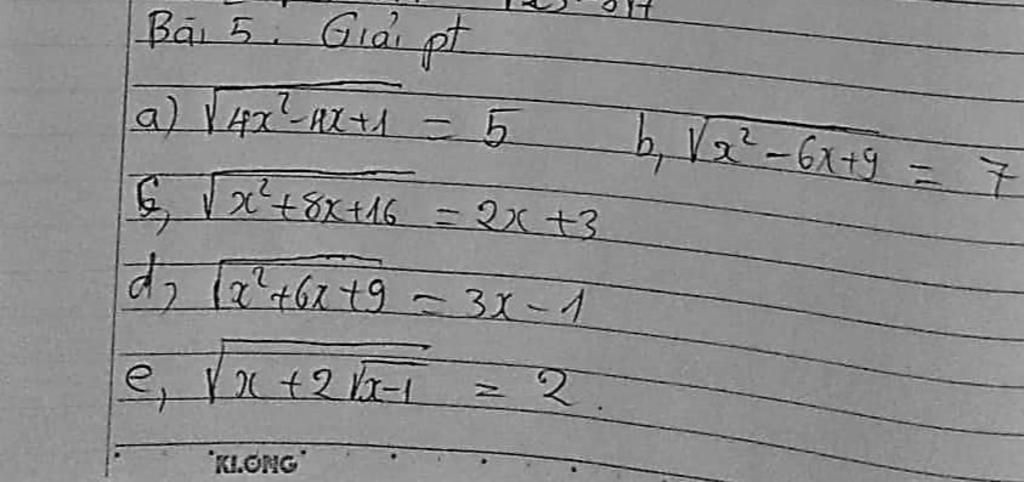 Bài 5. Giải pt
a) √(4x²-4x+1) = 5 b, √(x²-6x+9) = 7
c, √(x²+8x+16) = 2x+3
d, √(x²+6x+9) = 3x-1
e, √(x+2√(x-1)) = 2.
KLONG